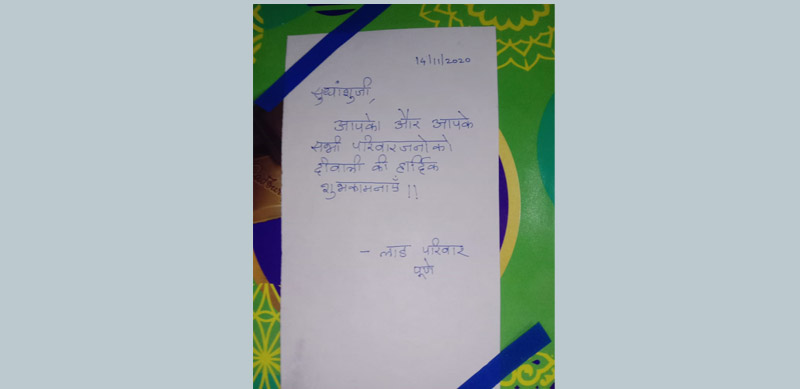 14/11/2020
सुधांशुजी,
आपको और आपके
सभी परिवारजनोको
दीवाली की हार्दिक
शुभकामनाएँ !!
- लाड परिवार
पूणे